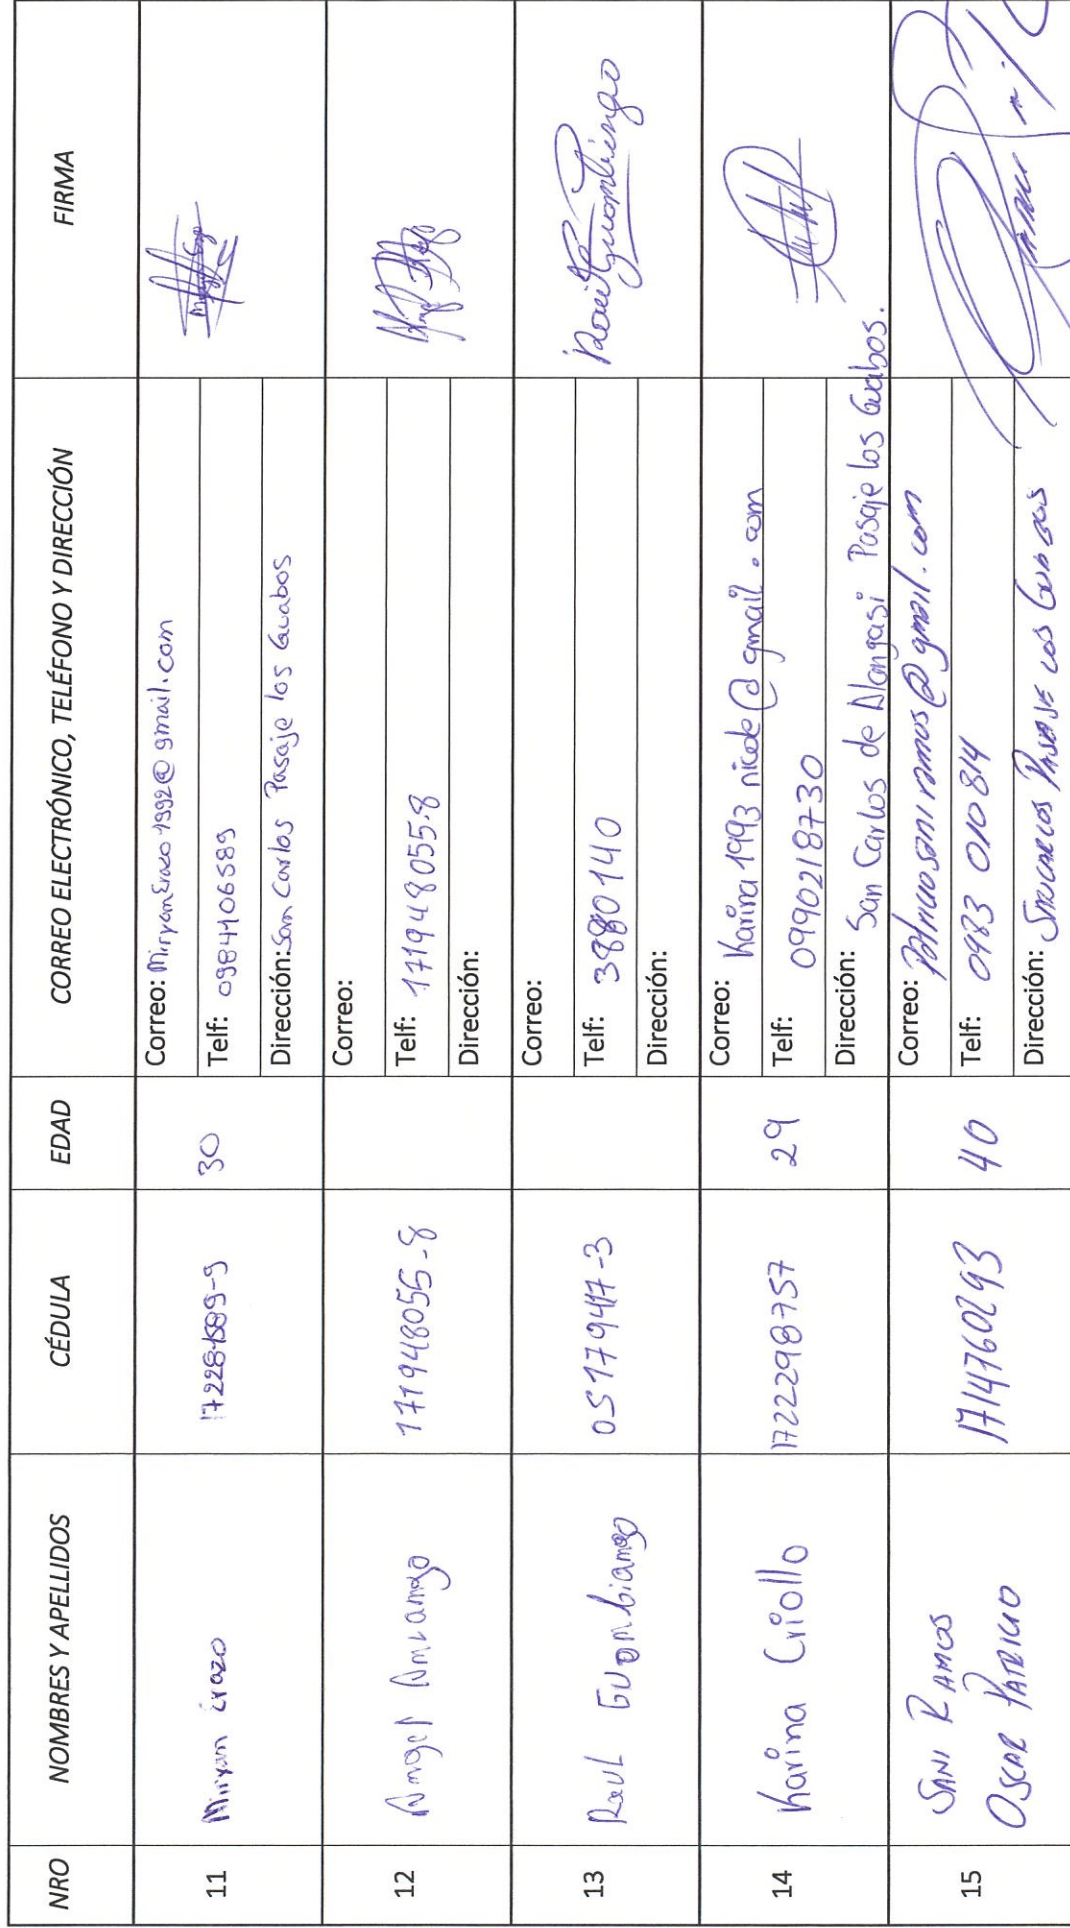 NRO NOMBRES Y APELLIDOS CÉDULA EDAD CORREO ELECTRÓNICO, TELÉFONO Y DIRECCIÓN FIRMA
11 Miryam Erazo 30
Correo: MiryamErazo1992@gmail.com
Telf: 0984406589
Dirección: San Carlos Pasaje los Guabos
12 Angel 171948055-8
Correo:
Telf: 171948055-8
Dirección:
13 Raul Guambiango 05179417-3
Correo:
Telf: 3880140
Dirección:
14 Karina Criollo 1722298757 29
Correo: Karina1993nicole@gmail.com
Telf: 0990218730
Dirección: San Carlos de Alangasi Pasaje los Guabos.
15 SANI RAMOS
OSCAR PATRICIO 1714760293 40
Correo: patriciosaniramos@gmail.com
Telf: 0983 010814
Dirección: SAN CARLOS PASAJE LOS GUABOS